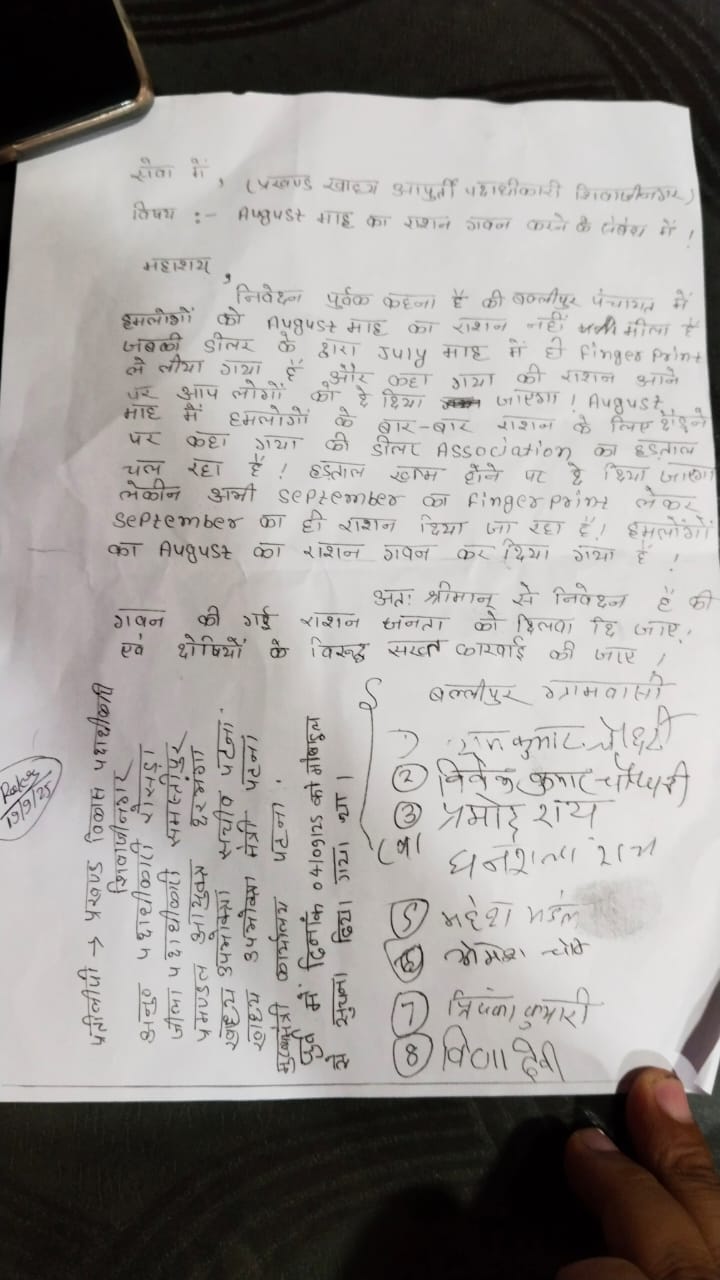 सेवा में,
(प्रखण्ड खाद्य आपुर्ती पदाधीकारी शिवाजीनगर)
विषय :- August माह का राशन गवन करने के संबंध में !
महाशय,
निवेदन पुर्वक कहना है की बल्लीपुर पंचायत में
हमलोगों को August माह का राशन नहीं मीला है
जबकी डीलर के द्वारा July माह में ही Finger Print
ले लीया गया है और कहा गया की राशन आने
पर आप लोगों को दे दिया जाएगा ! August
माह में हमलोगों के बार-बार राशन के लिए दौड़ने
पर कहा गया की डीलर Association का हड़ताल
चल रहा है ! हड़ताल खत्म होने पर दे दिया जाएगा
लेकीन अभी September का Finger Print लेकर
September का ही राशन दिया जा रहा है ! हमलोगों
का August का राशन गवन कर दिया गया है !
अतः श्रीमान् से निवेदन है की
गवन की गई राशन जनता को दिलवा दि जाए!
एवं दोषियों के विरूद्ध सख्त कारवाई की जाए !
बल्लीपुर ग्रामवासी
1) राम कुमार चौधरी
2 विवेक कुमार चौधरी
3 प्रमोद राय
(4)
राय
5 महेश मंडल
6
7 प्रियंका कुमारी
8 विणा देवी
प्रतीलीपी → प्रखण्ड विकास पदाधीकारी
शिवाजीनगर
अनुमंडल पदाधीकारी रोसड़ा
जीला पदाधीकारी समस्तीपुर
प्रमण्डल आयुक्त दरभंगा
खाद्य उपभोक्ता सचीव पटना.
खाद्य उपभोक्ता मंत्री पटना
मुख्यमंत्री कार्यालय पटना.
पुर्व में दिनांक 04/09/25 को मोबाइल
से सुचना दिया गया था।
19/9/25